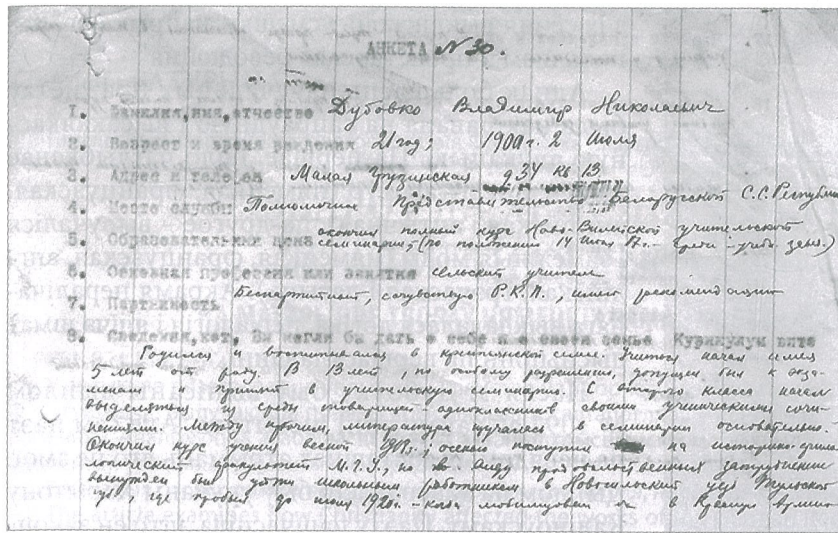 АНКЕТА № 30.
1. Фамилия, имя, отчество Дубовко Владимир Николаевич
2. Возраст и время рождения 21 год; 1900 г. 2 июля
3. Адрес и телефон Малая Грузинская д 34 кв 13
4. Место службы Полномочное Представительство Белорусской С.С. Республ
5. Образовательный ценз окончил полный курс Ново-Вилейской учительской
семинарии, (по положению 14 июля 17г. - средн. учебн. завед.)
6. Основная профессия или занятие сельский учитель
7. Партийность Беспартийный, сочувствую Р.К.П., имею рекомендации
8. Сведения, кот. Вы могли бы дать о себе и о своей семье Курикулум вите
Родился и воспитывался в крестьянской семье. Учиться начал имея
5 лет от роду. В 13 лет, по особому разрешению, допущен был к экза-
менам и принят в учительскую семинарию. С второго класса начал
выделяться из среды товарищей-одноклассников своими ученическими сочи-
нениями. Между прочим, литература изучалась в семинарии основательно.
Окончил курс учения весной 1918 г.; осенью поступил на историко-фило-
логический факультет М.Г.У., но в виду продовольственных затруднений
вынужден был уйти школьным работником в Новосильский уезд Тульской
губ., где пробыл до июля 1920 г. - когда мобилизован был в Красную армию